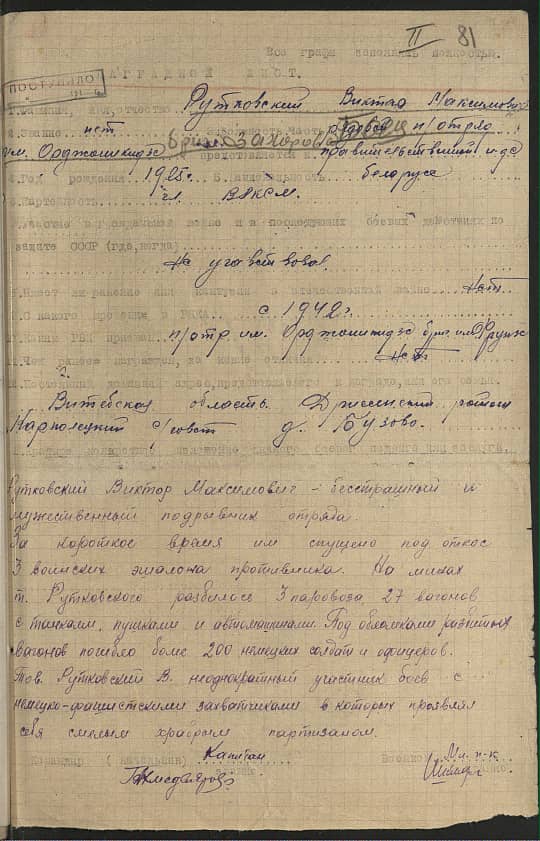 II 81
Все графы заполнять полностью.
НАГРАДНОЙ ЛИСТ.
ПОСТУПИЛО
1. Фамилия, имя, отчество Рутковский Виктор Максимович
2. Звание нет 3. Должность, часть рядовой п/отряда
им. Орджоникидзе представляется к правительственной
4. Год рождения 1925г. 5. Национальность белорус
6. Партийность чл. ВЛКСМ.
7. Участие в гражданской войне и в последующих боевых действиях по
защите СССР (где, когда)
Не участвовал.
8. Имеет ли ранение или контузии в отечественной войне Нет
9. С какого времени в РККА с 1942г.
10. Каким РВК призван п/отр им. Орджоникидзе бриг. им. Фрунзе
11. Чем ранее награжден, за какие отличия Нет
12. Постоянный домашний адрес, представляемого к награде, или его семьи.
Витебская область Дриссенский район
с/совет д. Бузово.
Рутковский Виктор Максимович - бесстрашный и
мужественный подрывник отряда.
За короткое время им спущено под откос
3 воинских эшалона противника. На минах
т. Рутковского разбилось 3 паровоза 27 вагонов
с танками, пушками и автомашинами. Под обломками разбитых
вагонов погибло более 200 немецких солдат и офицеров.
Тов. Рутковский В. неоднократный участник боев с
немецко-фашистскими захватчиками в которых проявлял
себя смелым храбрым партизаном.
Командир (начальник) Капитан Мл. п-к